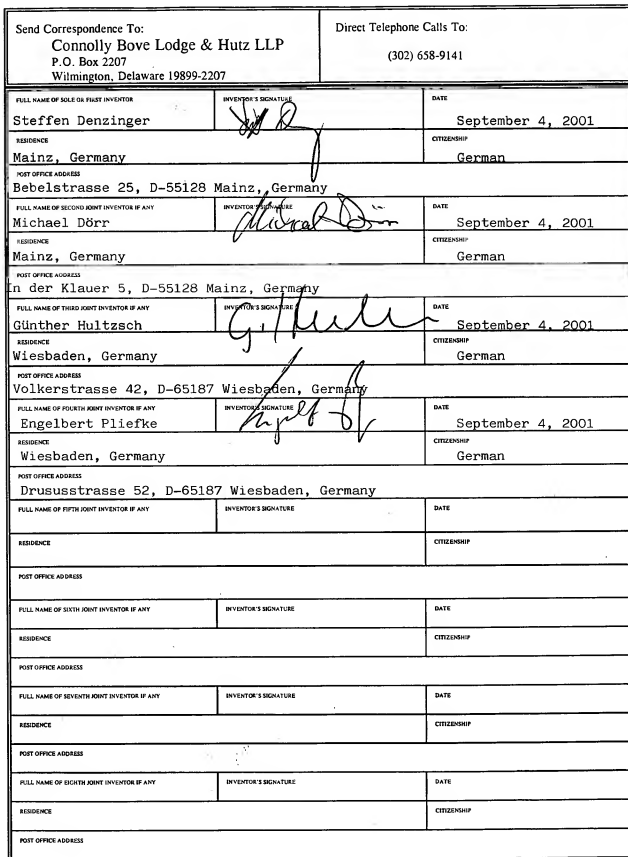 Send Correspondence To:
Connolly Bove Lodge & Hutz LLP
P.O. Box 2207
Wilmington, Delaware 19899-2207
Direct Telephone Calls To:
(302) 658-9141
FULL NAME OF SOLE OR FIRST INVENTOR INVENTOR'S SIGNATURE DATE
Steffen Denzinger September 4, 2001
RESIDENCE CITIZENSHIP
Mainz, Germany German
POST OFFICE ADDRESS
Bebelstrasse 25, D-55128 Mainz, Germany
FULL NAME OF SECOND JOINT INVENTOR IF ANY INVENTOR'S SIGNATURE DATE
Michael Dörr Michael Dörr September 4, 2001
RESIDENCE CITIZENSHIP
Mainz, Germany German
POST OFFICE ADDRESS
In der Klauer 5, D-55128 Mainz, Germany
FULL NAME OF THIRD JOINT INVENTOR IF ANY INVENTOR'S SIGNATURE DATE
Günther Hultzsch September 4, 2001
RESIDENCE CITIZENSHIP
Wiesbaden, Germany German
POST OFFICE ADDRESS
Volkerstrasse 42, D-65187 Wiesbaden, Germany
FULL NAME OF FOURTH JOINT INVENTOR IF ANY INVENTOR'S SIGNATURE DATE
Engelbert Pliefke September 4, 2001
RESIDENCE CITIZENSHIP
Wiesbaden, Germany German
POST OFFICE ADDRESS
Drususstrasse 52, D-65187 Wiesbaden, Germany
FULL NAME OF FIFTH JOINT INVENTOR IF ANY INVENTOR'S SIGNATURE DATE
RESIDENCE CITIZENSHIP
POST OFFICE ADDRESS
FULL NAME OF SIXTH JOINT INVENTOR IF ANY INVENTOR'S SIGNATURE DATE
RESIDENCE CITIZENSHIP
POST OFFICE ADDRESS
FULL NAME OF SEVENTH JOINT INVENTOR IF ANY INVENTOR'S SIGNATURE DATE
RESIDENCE CITIZENSHIP
POST OFFICE ADDRESS
FULL NAME OF EIGHTH JOINT INVENTOR IF ANY INVENTOR'S SIGNATURE DATE
RESIDENCE CITIZENSHIP
POST OFFICE ADDRESS